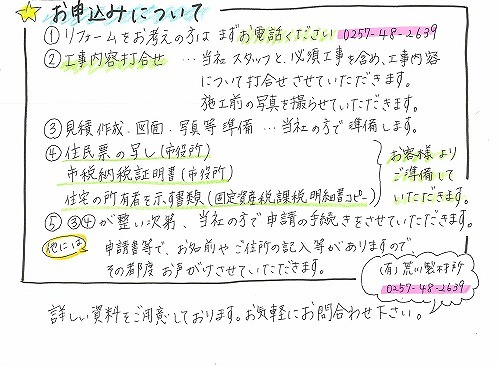 お申込みについて
① リフォームをお考えの方は まず お電話ください 0257-48-2639
② 工事内容打合せ …当社スタッフと、必須工事を含め、工事内容
について打合せさせていただきます。
施工前の写真を撮らせていただきます。
③ 見積作成・図面・写真等 準備 …当社の方で準備します。
④ 住民票の写し(市役所)
市税納税証明書(市役所)
住宅の所有者を示す書類(固定資産税課税明細書コピー)
お客様より
ご準備して
いただきます。
⑤ ③④が整い次第、当社の方で申請の手続きをさせていただきます。
他には
申請書等で、お名前やご住所の記入等がありますので
その都度お声がけさせていただきます。
(有)荒川製材所
0257-48-2639
詳しい資料をご用意しております。お気軽にお問合わせ下さい。